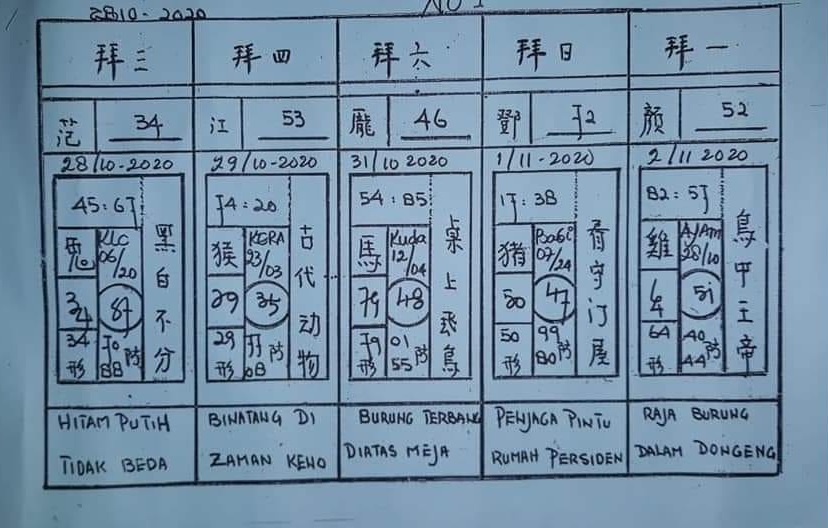 28-10-2020
NO 1
拜三
拜四
拜六
拜日
拜一
范 34
江 53
龐 46
鄧 72
顏 52
28/10-2020
29/10-2020
31/10 2020
1/11-2020
2/11 2020
45:67
兔
KLC
06/20
34
87
34
形
70
88
防
黑白不分
74:20
猴
KERA
23/03
29
35
29
形
77
08
防
古代动物
54:85
馬
Kuda
12/04
79
48
79
形
01
55
防
桌上飛鳥
17:38
猪
Babi
07/24
50
47
50
形
99
80
防
看守门屋
82:57
雞
AYAM
28/10
64
57
64
形
40
44
防
鳥中王帝
HITAM PUTIH
TIDAK BEDA
BINATANG DI
ZAMAN KENO
BURUNG TERBANG
DIATAS MEJA
PENJAGA PINTU
RUMAH PERSIDEN
RAJA BURUNG
DALAM DONGENG